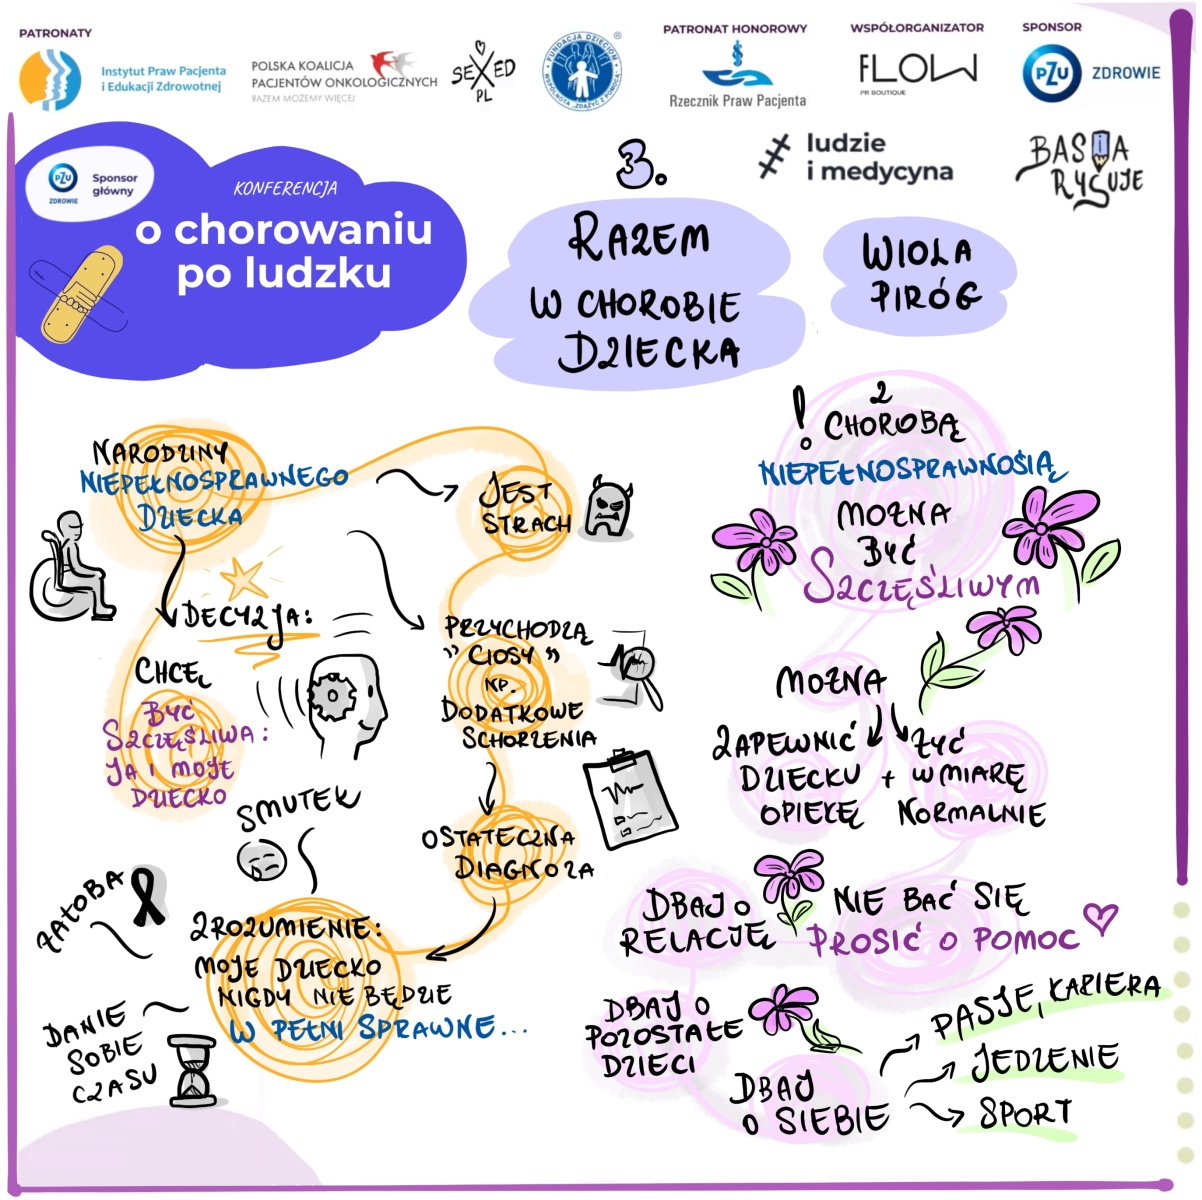 PATRONATY
Instytut Praw Pacjenta
i Edukacji Zdrowotnej
POLSKA KOALICJA
PACJENTÓW ONKOLOGICZNYCH
RAZEM MOŻEMY WIĘCEJ
SEXED
PL
FUNDACJA DZIECIOM
"ZDĄŻYĆ Z POMOCĄ"
PATRONAT HONOROWY
Rzecznik Praw Pacjenta
WSPÓŁORGANIZATOR
FLOW
PR BOUTIQUE
SPONSOR
PZU ZDROWIE
ludzie
i medycyna
BASIA
RYSUJE
PZU
ZDROWIE
Sponsor
główny
KONFERENCJA
o chorowaniu
po ludzku
3.
RAZEM
W CHOROBIE
DZIECKA
WIOLA
PIRÓG
NARODZINY
NIEPEŁNOSPRAWNEGO
DZIECKA
JEST
STRACH
DECYZJA:
CHCĘ
BYĆ
SZCZĘŚLIWA:
JA I MOJE
DZIECKO
PRZYCHODZĄ
"CIOSY"
NP.
DODATKOWE
SCHORZENIA
OSTATECZNA
DIAGNOZA
SMUTEK
ŻAŁOBA
DANIE
SOBIE
CZASU
ZROZUMIENIE:
MOJE DZIECKO
NIGDY NIE BĘDZIE
W PEŁNI SPRAWNE...
! Z
CHOROBĄ
NIEPEŁNOSPRAWNOŚIĄ
MOŻNA
BYĆ
SZCZĘŚLIWYM
MOŻNA
ZAPEWNIĆ
DZIECKU
OPIEKĘ
+
ŻYĆ
W MIARĘ
NORMALNIE
DBAJ O
RELACJĘ
NIE BAĆ SIĘ
PROSIĆ O POMOC
DBAJ O
POZOSTAŁE
DZIECI
DBAJ
O SIEBIE
PASJE, KARIERA
JEDZENIE
SPORT